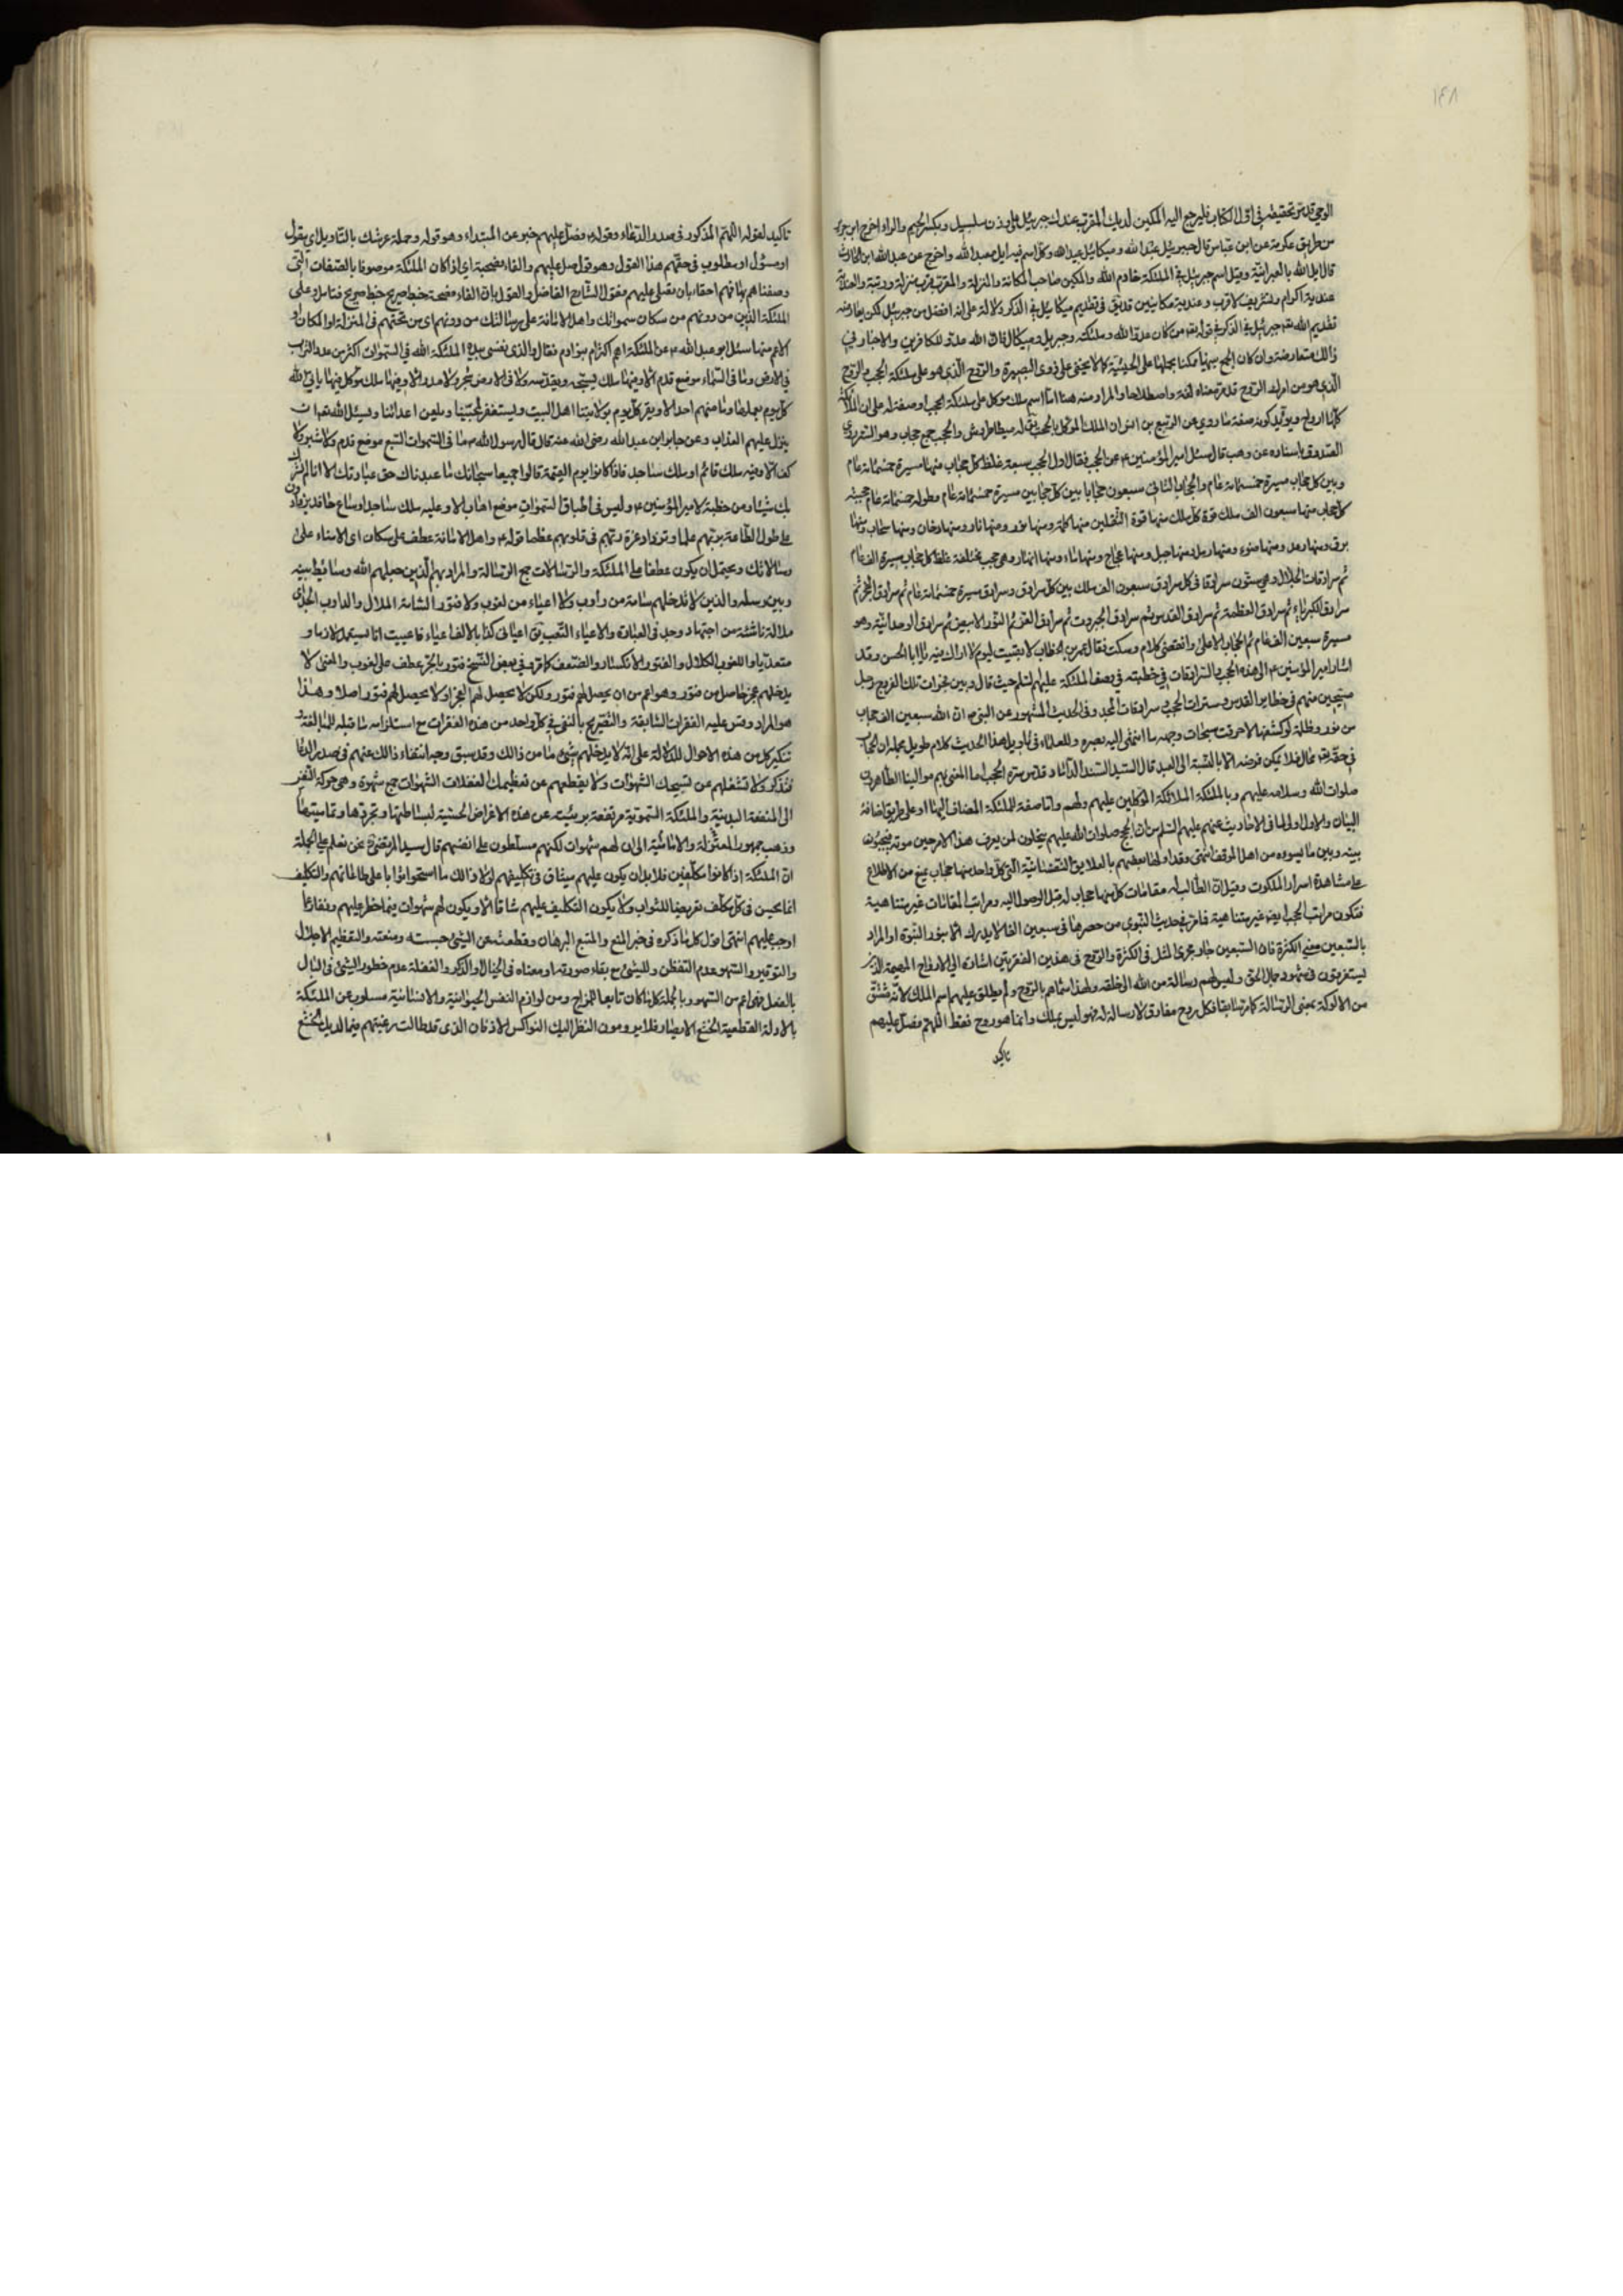 الوحي قد مر تحقيقه في اول الكتاب فليرجع اليه المكين لديك المقرب عندك جبرئيل على وزن سلسبيل وبكسر الجيم والراء اخرج ابن جرير
من طريق عكرمة عن ابن عباس قال جبرئيل عبد الله وميكائيل عبيد الله وكل اسم فيه ايل معبد الله واخرج عن عبد الله ابن الحارث
قال ايل الله بالعبرانية وقيل اسم جبرئيل في الملئكة خادم الله والمكين صاحب المكانة والمنزلة والمقرب قرب منزلة ورتبة
عندية اكرام وتشريف لا قرب وعندية مكانيين في تقديم ميكائيل في الذكر دلالة على انه افضل من جبرئيل لكن يعارضه
تقديم الله جبرئيل في الذكر في قوله من كان عدوا لله وملئكته وجبريل وميكال فان الله عدو للكافرين والاخبار في
ذلك متعارضة وان كان الجمع بينها ممكنا بحملها على الحيثية كما لا يخفى على ذوي البصيرة والروح الذي هو على ملئكة الحجب والروح
الذي هو من امرك الروح قد مر معناه لغة واصطلاحا والمراد منه هنا اما اسم ملك موكل على ملئكة الحجب او صفة له على ان الملائكة
كلها ارواح ويؤيد كونه صفة ما روي عن الربيع بن انس ان الملك الموكل بالحجب يق له ميطاطروش والحجب جمع حجاب وهو الستر روى
الصدوق باسناده عن وهب قال سئل امير المؤمنين ع عن الحجب فقال اول الحجب سبعة غلظ كل حجاب منها مسيرة خمسمائة عام
وبين كل حجاب مسيرة خمسمائة عام والحجاب الثاني سبعون حجابا بين كل حجابين مسيرة خمسمائة عام وطوله خمسمائة عام حجبة
كل حجاب منها سبعون الف ملك قوة كل ملك منها قوة الثقلين منها ظلمة ومنها نور ومنها نار ومنها دخان ومنها سحاب ومنها
برق ومنها رعد ومنها ضوء ومنها رمل ومنها جبل ومنها عجاج ومنها ماء ومنها انهار وهي حجب مختلفة غلظ كل حجاب مسيرة الف عام
ثم سرادقات الجلال وهي ستون سرادقا في كل سرادق سبعون الف ملك بين كل سرادق وسرادق مسيرة خمسمائة عام ثم سرادق الفخر ثم
سرادق الكبرياء ثم سرادق العظمة ثم سرادق القدس ثم سرادق الجبروت ثم سرادق العز ثم النور الابيض ثم سرادق الوحدانية وهو
مسيرة سبعين الف عام ثم الحجاب الاعلى وانقضى كلامه وسكت فقال عمر بن الخطاب لا بقيت ليوم لا اراك فيه يا ابا الحسن وقد
اشار امير المؤمنين ع الى هذه الحجب والسرادقات في خطبته في وصف الملئكة عليهم السلام حيث قال وبين فجوات تلك الفروج زجل
مسبحين منهم في حظاير القدس وسترات الحجب وسرادقات المجد وفي الحديث المشهور عن النبي ص ان الله سبعين الف حجاب
من نور وظلمة لو كشفها لاحرقت سبحات وجهه ما انتهى اليه بصره وللعلماء في تاويل هذا الحديث كلام طويل مجمله ان الحجاب
في حقه محال فلا يمكن فرضه الا بالنسبة الى العبد قال السيد السند الداماد قدس سره الحجب اما المعنى بهم موالينا الطاهرون
صلوات الله وسلامه عليهم وبالملئكة الملائكة الموكلين عليهم ولهم واما صفة للملئكة المضاف اليها او على طريق اضافة
البيان والاول اولى لما في الاحاديث عنهم عليهم السلم من ان الحجج صلوات الله عليهم
بينه وبين ما يسوءه من اهل الموقف انتهى وقد اولها بعضهم بالعلايق النفسانية التي كل واحد منها حجاب يمنع من الاطلاع
على مشاهدة اسرار الملكوت وقيل ان الطالب له مقامات كل منها حجاب له قبل الوصول اليه ومراتب المقامات غير متناهية
فتكون مراتب الحجب ايضا غير متناهية فما مر في حديث النبوي من حصرها في سبعين الفا لا يدرك الا بنور النبوة او المراد
بالسبعين معنى الكثرة فان السبعين جار مجرى المثل في الكثرة والروح في هذين الفقرتين اشارة الى الارواح المهيمة الذين
يستغرقون في شهود جمال الحق وليس لهم رسالة من الله الى خلقه ولهذا سماهم بالروح ولم يطلق عليهم اسم الملك لانه مشتق
من الالوكة بمعنى الرسالة كما مر سابقا فكل روح مفارق لا رسالة له فهو ليس بملك وانما هو روح فقط اللهم فصل عليهم
تاكيد
تاكيد لقوله اللهم المذكور في صدر الدعاء وقوله فصل عليهم خبر عن المبتداء وهو قوله وحملة عرشك بالتاويل اي يقول
او مسؤل او مطلوب في حقهم هذا القول وهو قول صل عليهم والفاء فصيحة اي اذا كان الملئكة موصوفا بالصفات التي
وصفناهم بها فهم احقاء بان تصلي عليهم فقول الشارح الفاضل والقول بان الفاء فصيحة خبط صريح خبط صريح فتامل وعلى
الملئكة الذين من دونهم من سكان سمواتك واهل الامانة على رسالاتك من دونهم اي من تحتهم في المنزلة او المكان او
الاعم منها سئل ابو عبد الله ع عن الملئكة اهم اكثر ام بنو ادم فقال والذي نفسي بيده لملئكة الله في السموات اكثر من عدد التراب
في الارض وما في السماء موضع قدم الا وفيها ملك يسبحه ويقدسه ولا في الارض شجر ولا مدر الا وفيها ملك موكل بها ياتي الله
كل يوم بعملها وما منهم احد الا ويقر كل يوم بولايتنا اهل البيت ويستغفر لمحبينا ويلعن اعدائنا ويسئل الله ان
ينزل عليهم العذاب وعن جابر ابن عبد الله رضي الله عنه قال قال رسول الله ص ما في السموات السبع موضع قدم ولا شبر ولا
كف الا وفيه ملك قائم او ملك ساجد فاذا كانوا يوم القيمة قالوا جميعا سبحانك ما عبدناك حق عبادتك الا انا لم نشرك
بك شيئا ومن خطبة لامير المؤمنين ع وليس في أطباق السموات موضع اهاب الا وعليه ملك ساجد او ساع حافد يزدادون
على طول الطاعة بربهم علما وتزداد عزة ربهم في قلوبهم عظما قوله ع واهل الامانة عطف على سكان اي الامناء على
رسالاتك ويحتمل ان يكون عطفا على الملئكة والرسالات جمع الرسالة والمراد بهم الذين جعلهم الله وسائط بينه
وبين رسله والذين لا تدخلهم سامة من دأوب ولا اعياء من لغوب ولا فتور السامة الملال والداوب الجد اي
ملالة ناشئة من اجتهاد وجد في العبادة والاعياء التعب يق اعيا في كذا بالالف اعياء فاعييت انا يستعمل لازما و
متعديا واللغوب الكلال والفتور الانكسار والضعف كما قرء في بعض النسخ فتور بالجر عطف على لغوب والمعنى لا
يدخلهم عجز حاصل من فتور وهو اعم من ان يحصل لهم فتور ولكن لا يحصل لهم العجز او لا يحصل لهم فتور اصلا وهذا
هو المراد وقس عليه الفقرات السابقة والتصريح بالنفي في كل واحد من هذه الفقرات مع استلزامه ما قبله للمبالغة و
تنكير كل من هذه الاحوال للدلالة على انه لا يدخلهم شيء ما من ذلك وقد سبق وجه انتفاء ذلك عنهم في صدر الدعاء
فتذكر ولا تشغلهم عن تسبيحك الشهوات ولا يقطعهم عن تعظيمك لغفلات الشهوات جمع شهوة وهي حركة النفس
الى المنفعة البدنية والملئكة السموية مرتفعة بريئة عن هذه الاغراض الحسية لبساطتها وتجردها وتماميتها
وذهب جمهور المعتزلة والامامية الى ان لهم شهوات لكنهم مسلطون على انفسهم قال سيد المرتضى نحن نعلم على الجملة
ان الملئكة اذا كانوا مكلفين فلا بد ان يكون عليهم مشاق في تكليفهم ولولا ذلك ما استحقوا ثوابا على طاعاتهم والتكليف
انما يحسن في كل مكلف تعريضا للثواب ولا يكون التكليف عليهم شاقا الا ويكون لهم شهوات فيما حظر عليهم ونفار عما
اوجب عليهم انتهى اقول كل ما ذكره في حيز المنع والمتبع البرهان وقطعته عن الشيء حبسته ومنعته والتعظيم الاجلال
والتوقير والسهو عدم التفطن للشيء مع بقاء صورته او معناه في الخيال او الذكر والغفلة عدم خطور الشيء في البال
بالفعل فهي اعم من السهو وبالجملة كل ما كان تابعا للمزاج ومن لوازم النفس الحيوانية والانسانية مسلوب عن الملئكة
بالادلة القطعية الخشع الابصار فلا يرومون النظر اليك النواكس الاذقان الذي قد طالت رغبتهم فيما لديك الخشع